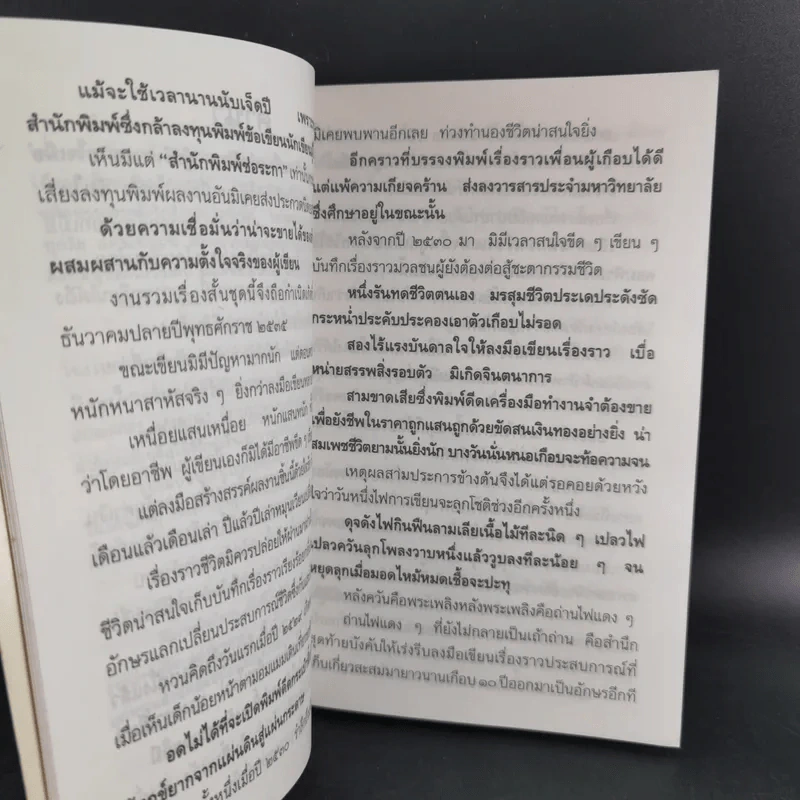 แม้จะใช้เวลานานนับเจ็ดปี
สำนักพิมพ์ซึ่งกล้าลงทุนพิมพ์ข้อเขียนนักเขียน
เห็นมีแต่ “สำนักพิมพ์ช่อระกา”
เสี่ยงลงทุนพิมพ์ผลงานอันมิเคยส่งประกวด
ด้วยความเชื่อมั่นว่าน่าจะขายได้
ผสมผสานกับความตั้งใจจริงของผู้เขียน
งานรวมเรื่องสั้นชุดนี้จึงถือกำเนิด
ธันวาคมปลายปีพุทธศักราช ๒๕๓๕
ขณะเขียนมิมีปัญหามากนัก
หนักหนาสาหัสจริง ๆ ยิ่งกว่าลงมือเขียน
เหนื่อยแสนเหนื่อย หนักแสนหนัก
ว่าโดยอาชีพ ผู้เขียนเองก็มิได้มีอาชีพขีด ๆ
แต่ลงมือสร้างสรรค์ผลงานชิ้นนี้ด้วย
เดือนแล้วเดือนเล่า ปีแล้วปีเล่าหมุนเวียน
เรื่องราวชีวิตมิควรปล่อยให้ผ่าน
ชีวิตน่าสนใจเก็บบันทึกเรื่องราวเรียงร้อย
อักษรแลกเปลี่ยนประสบการณ์ชีวิตซึ่งกัน
หวนคิดถึงวันแรกเมื่อปี
เมื่อเห็นเด็กน้อยหน้าตามอมแมมเดิน
อดไม่ได้ที่จะเปิดพิมพ์ดีด
ยากจากแผ่นดินสู่แผ่นกระดาษ
หนึ่งเมื่อปี ๒๕๓๐
มิเคยพบพานอีกเลย ท่วงทำนองชีวิตน่าสนใจยิ่ง
อีกคราวที่บรรจงพิมพ์เรื่องราวเพื่อนผู้เกือบได้ดี
แต่แพ้ความเกียจคร้าน ส่งลงวารสารประจำมหาวิทยาลัย
ซึ่งศึกษาอยู่ในขณะนั้น
หลังจากปี ๒๕๓๐ มา มิมีเวลาสนใจขีด ๆ เขียน ๆ
บันทึกเรื่องราวมวลชนผู้ยังต้องต่อสู้ชะตากรรมชีวิต
หนึ่งรันทดชีวิตตนเอง มรสุมชีวิตประเดประดังซัด
กระหน่ำประคับประคองเอาตัวเกือบไม่รอด
สองไร้แรงบันดาลใจให้ลงมือเขียนเรื่องราว เบื่อ
หน่ายสรรพสิ่งรอบตัว มิเกิดจินตนาการ
สามขาดเสียซึ่งพิมพ์ดีดเครื่องมือทำงานจำต้องขาย
เพื่อยังชีพในราคาถูกแสนถูกด้วยขัดสนเงินทองอย่างยิ่ง น่า
สมเพชชีวิตยามนั้นยิ่งนัก บางวันนั่นหนอเกือบจะท้อความจน
เหตุผลสามประการข้างต้นจึงได้แต่รอคอยด้วยหวัง
ใจว่าวันหนึ่งไฟการเขียนจะลุกโชติช่วงอีกครั้งหนึ่ง
ดุจดังไฟกินฟืนลามเลียเนื้อไม้ทีละนิด ๆ เปลวไฟ
เปลวควันลุกโพลงวาบหนึ่งแล้ววูบลงทีละน้อย ๆ จน
หยุดลุกเมื่อมอดไหม้หมดเชื้อจะปะทุ
หลังควันคือพระเพลิงหลังพระเพลิงคือถ่านไฟแดง ๆ
ถ่านไฟแดง ๆ ที่ยังไม่กลายเป็นเถ้าถ่าน คือสำนึก
สุดท้ายบังคับให้เร่งรีบลงมือเขียนเรื่องราวประสบการณ์ที่
เก็บเกี่ยวสะสมมายาวนานเกือบ ๑๐ ปีออกมาเป็นอักษรอีกที